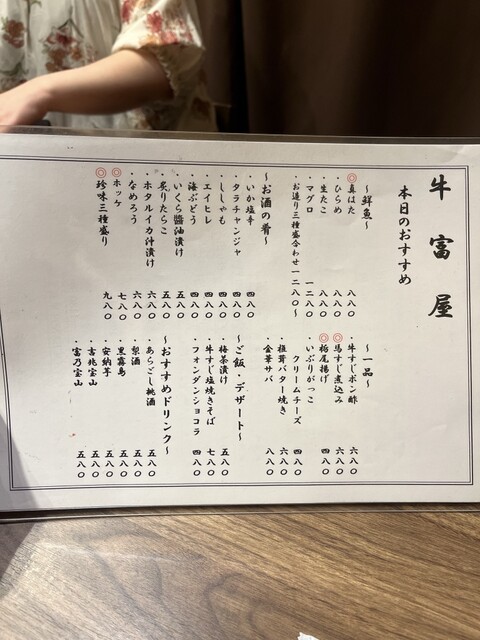 牛富屋
本日のおすすめ
～鮮魚～
◎真はた 八八〇
・ひらめ 八八〇
・生たこ 八八〇
・マグロ 一二八〇
・お造り三種盛合わせ一二八〇～
～お酒の肴～
・いか塩辛 四八〇
・タラチャンジャ 四八〇
・ししゃも 四八〇
・エイヒレ 四八〇
・海ぶどう 四八〇
・いくら醤油漬け 五八〇
・炙りたらこ 五八〇
・ホタルイカ沖漬け 六八〇
・なめろう 六八〇
◎ホッケ 七八〇
◎珍味三種盛り 九八〇
～一品～
・牛すじポン酢 六八〇
◎馬すじ煮込み 六八〇
◎栃尾揚げ 四八〇
・いぶりがっこ
クリームチーズ 四八〇
・椎茸バター焼き 六八〇
・金華サバ 八八〇
～ご飯・デザート～
・梅茶漬け 五八〇
・牛すじ塩焼きそば 七八〇
・フォンダンショコラ 四八〇
～おすすめドリンク～
・あらごし桃酒 五八〇
・梨酒 五八〇
・黒霧島 五八〇
・安納芋 五八〇
・吉兆宝山 五八〇
・富乃宝山 五八〇